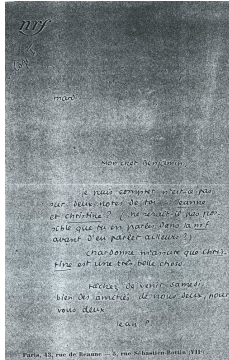 nrf
mardi
Mon cher Benjamin
je puis compter n'est-ce pas
sur deux notes de toi : Jeanne
et Christine ? (ne serait-il pas pos-
sible que tu en parles dans la nrf
avant d'en parler ailleurs ?)
Chardonne m'assure que Chris-
tine est une très belle chose.
tâchez de venir samedi.
bien des amitiés de nous deux, pour
vous deux
Jean P.
Paris, 43, rue de Beaune — 5, rue Sébastien-Bottin (VIIe)